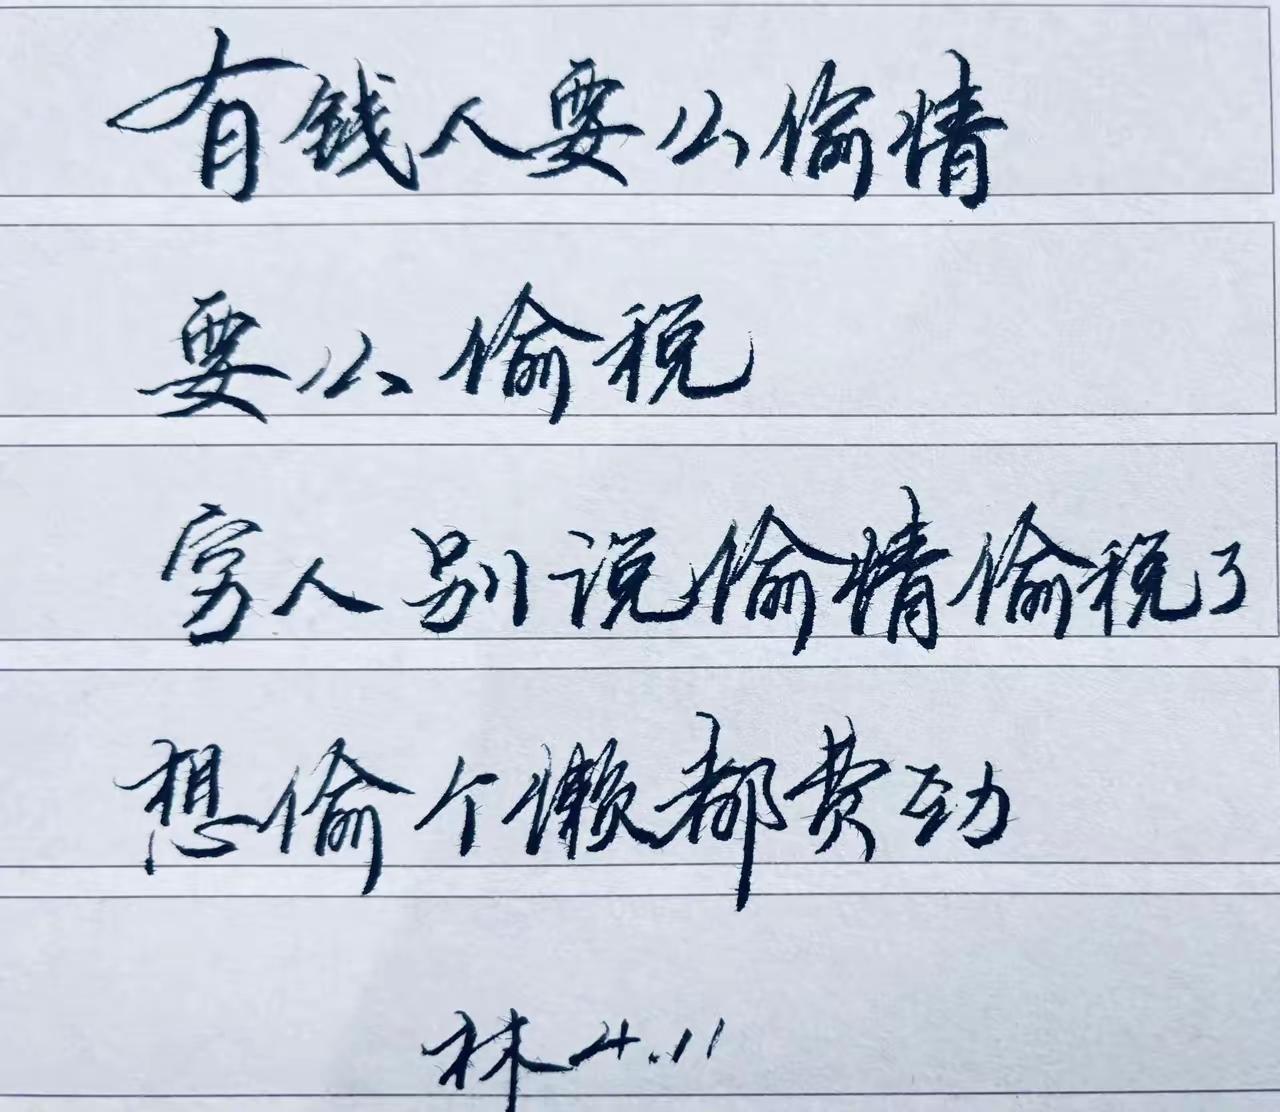 有钱人要么偷情
要么偷税
穷人别说偷情偷税了
想偷个懒都费劲
林4.11